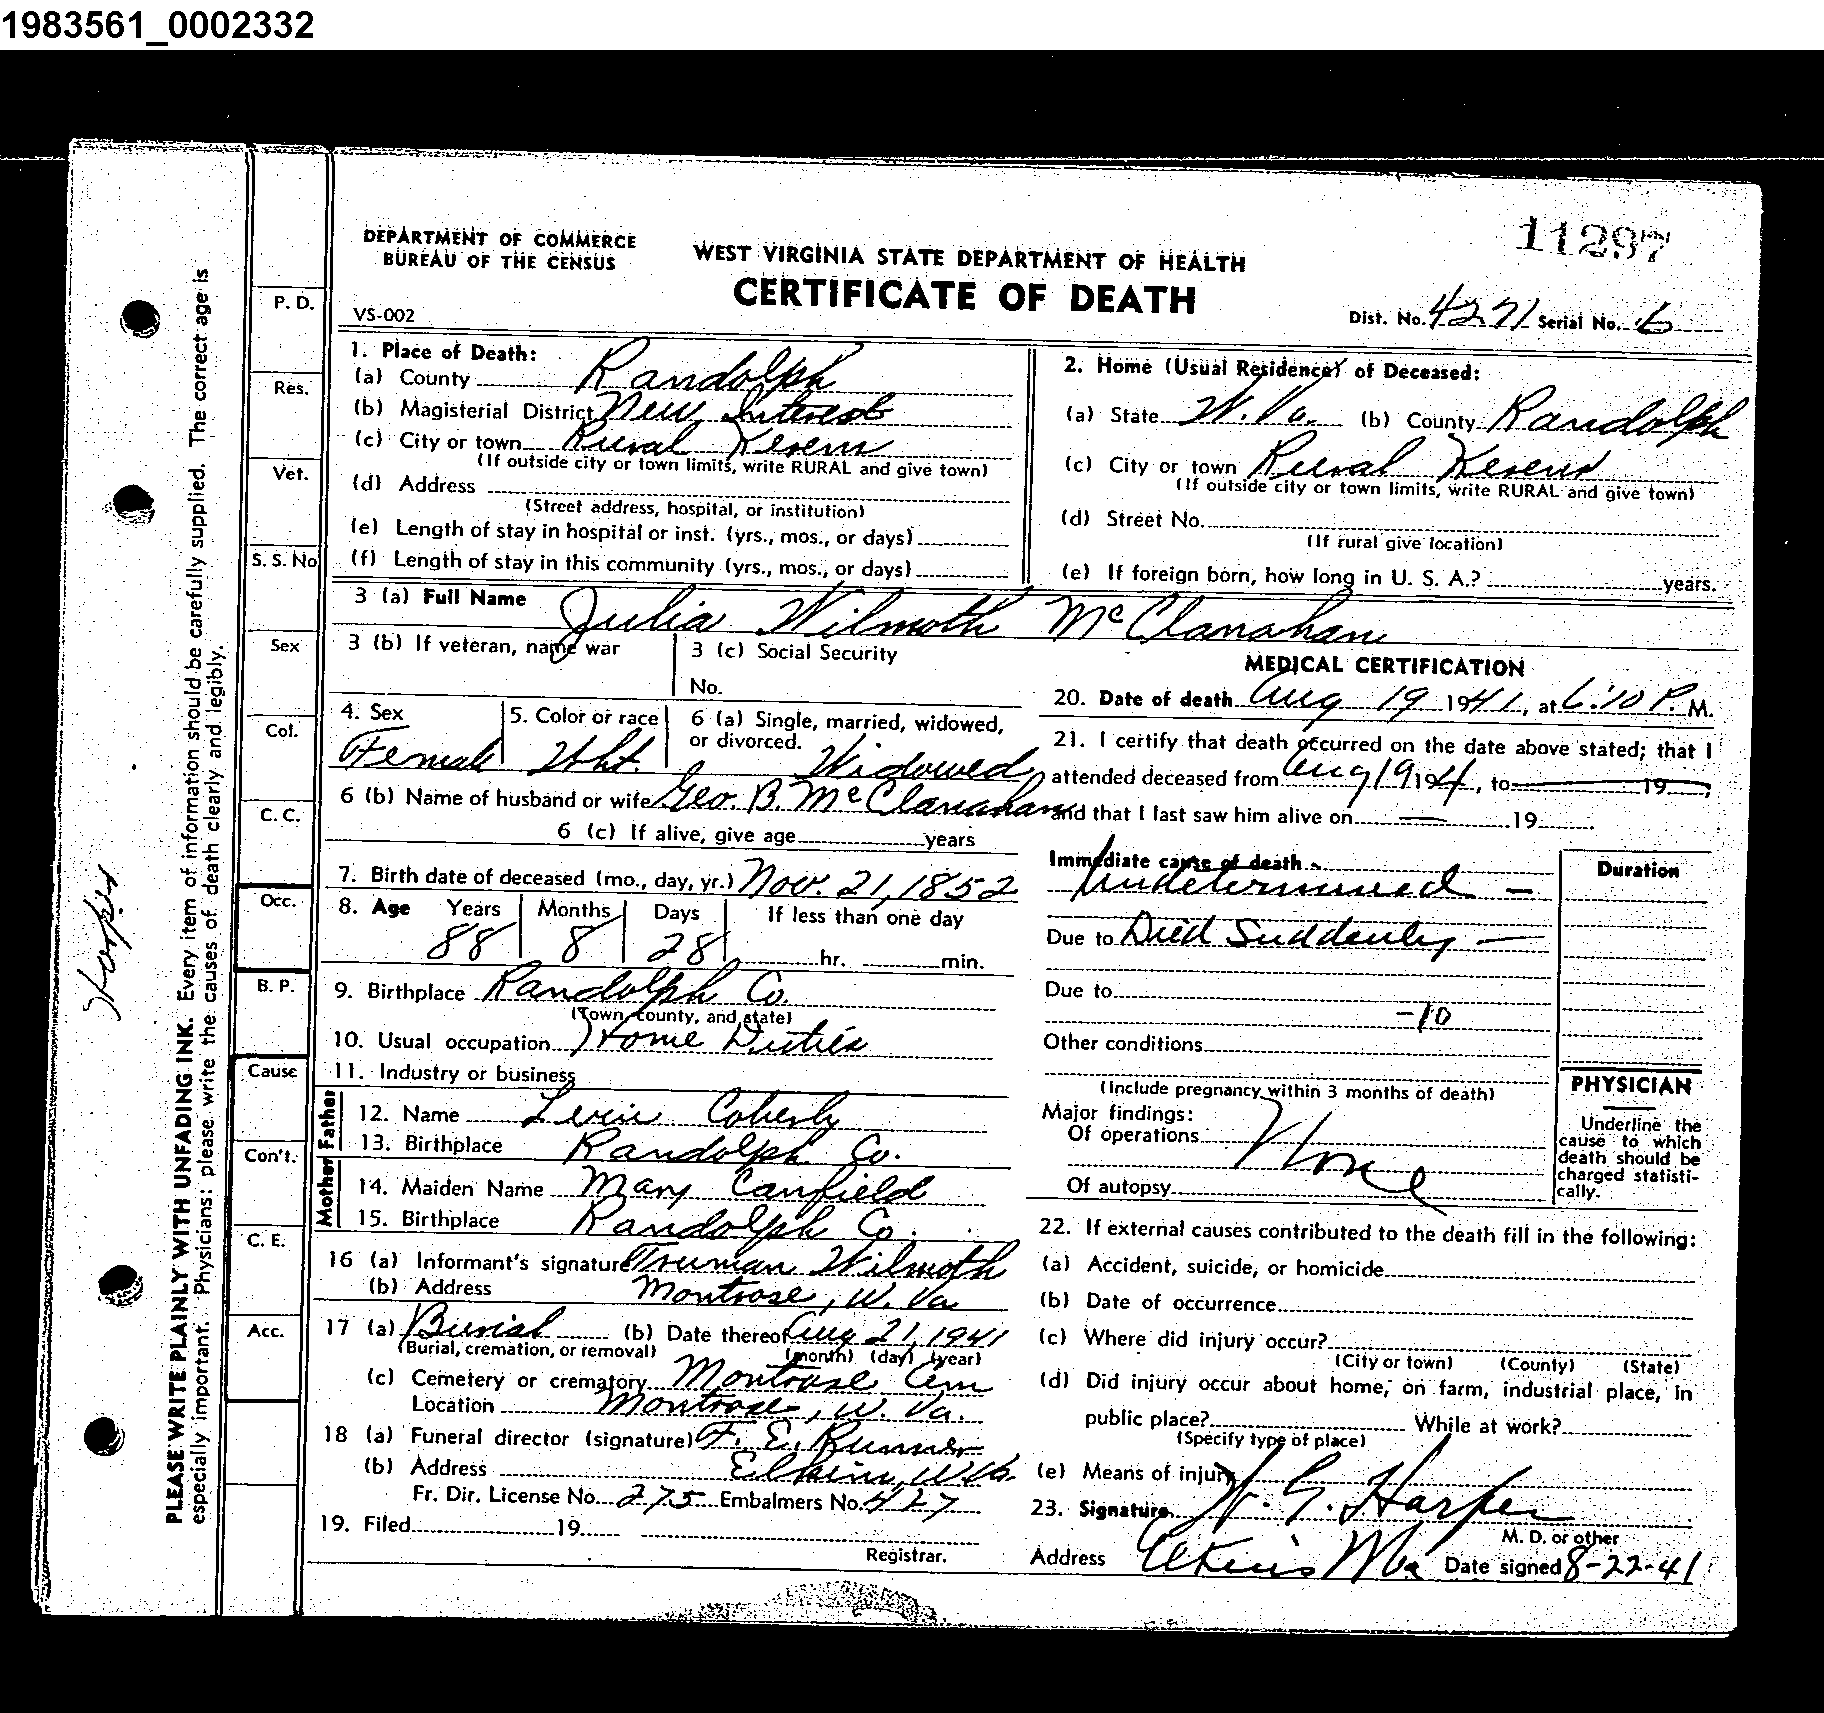 1983561_0002332
11297
DEPARTMENT OF COMMERCE
BUREAU OF THE CENSUS
WEST VIRGINIA STATE DEPARTMENT OF HEALTH
CERTIFICATE OF DEATH
VS-002
Dist. No. 4271 Serial No. 6
1. Place of Death:
(a) County Randolph
(b) Magisterial District New Interest
(c) City or town Rural Kerens
(If outside city or town limits, write RURAL and give town)
(d) Address
(Street address, hospital, or institution)
(e) Length of stay in hospital or inst. (yrs., mos., or days)
(f) Length of stay in this community (yrs., mos., or days)
2. Home (Usual Residence) of Deceased:
(a) State W. Va. (b) County Randolph
(c) City or town Rural Kerens
(If outside city or town limits, write RURAL and give town)
(d) Street No.
(If rural give location)
(e) If foreign born, how long in U. S. A.? years.
3 (a) Full Name Julia Wilmoth McClanahan
3 (b) If veteran, name war
3 (c) Social Security
No.
4. Sex
Female
5. Color or race
Wht.
6 (a) Single, married, widowed,
or divorced.
Widowed
6 (b) Name of husband or wife Geo. B. McClanahan
6 (c) If alive, give age years
7. Birth date of deceased (mo., day, yr.) Nov. 21, 1852
8. Age Years Months Days If less than one day
88 8 28 hr. min.
9. Birthplace Randolph Co.
(Town, county, and state)
10. Usual occupation Home Duties
11. Industry or business
Father
12. Name Levin Coberly
13. Birthplace Randolph Co.
Mother
14. Maiden Name Mary Canfield
15. Birthplace Randolph Co.
16 (a) Informant's signature Truman Wilmoth
(b) Address Montrose, W. Va.
17 (a) Burial (b) Date thereof Aug 21, 1941
(Burial, cremation, or removal) (month) (day) (year)
(c) Cemetery or crematory Montrose Cem
Location Montrose, W. Va.
18 (a) Funeral director (signature) F. E. Runner
(b) Address Elkins, W.Va.
Fr. Dir. License No. 275 Embalmers No. 427
19. Filed 19
Registrar.
MEDICAL CERTIFICATION
20. Date of death Aug 19 1941, at 6:10 P. M.
21. I certify that death occurred on the date above stated; that I
attended deceased from Aug 19 194, to 19
and that I last saw him alive on — 19
Immediate cause of death
Undetermined —
Due to Died Suddenly —
Due to
-10
Other conditions
(Include pregnancy within 3 months of death)
Major findings:
Of operations None
Of autopsy
Duration
PHYSICIAN
Underline the
cause to which
death should be
charged statisti-
cally.
22. If external causes contributed to the death fill in the following:
(a) Accident, suicide, or homicide
(b) Date of occurrence
(c) Where did injury occur?
(City or town) (County) (State)
(d) Did injury occur about home, on farm, industrial place, in
public place? While at work?
(Specify type of place)
(e) Means of injury
23. Signature W. G. Harper
M. D. or other
Address Elkins WVa Date signed 8-22-41
P. D.
Res.
Vet.
S. S. No
Sex
Col.
C. C.
Occ.
B. P.
Cause
Con't.
C. E.
Acc.
PLEASE WRITE PLAINLY WITH UNFADING INK. Every item of information should be carefully supplied. The correct age is
especially important. Physicians: please write the causes of death clearly and legibly.